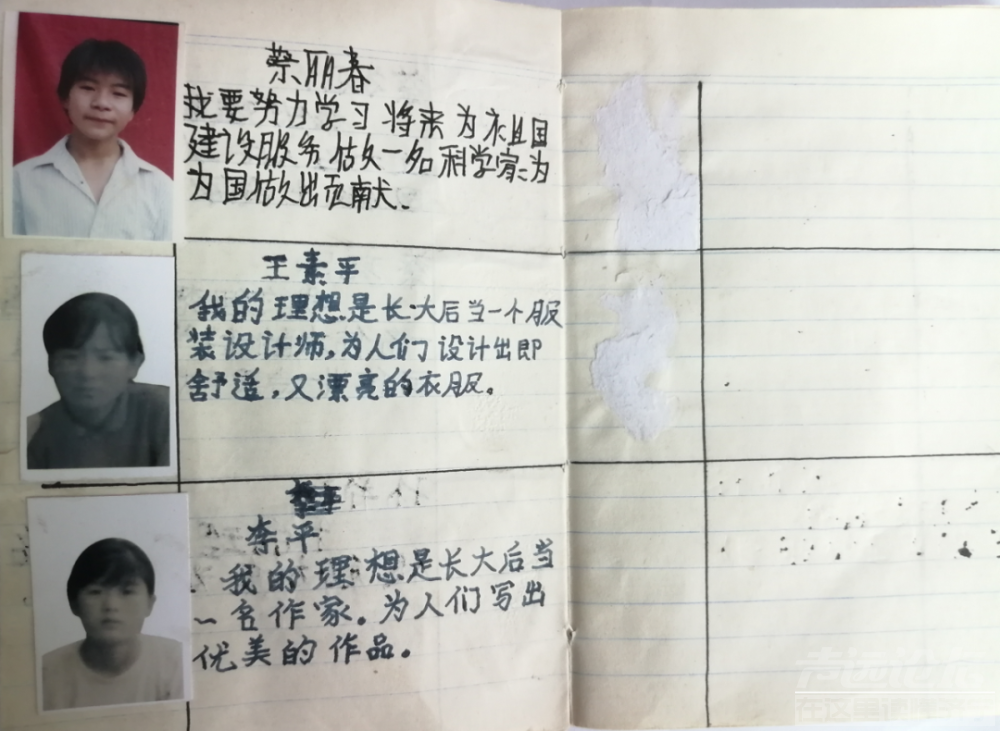 蔡丽春
我要努力学习 将来为祖国
建设服务 做一名科学家为
为国做出贡献、
王素平
我的理想是长大后当一个服
装设计师,为人们设计出即
舒适,又漂亮的衣服。
李平
我的理想是长大后当
一名作家。为人们写出
优美的作品。